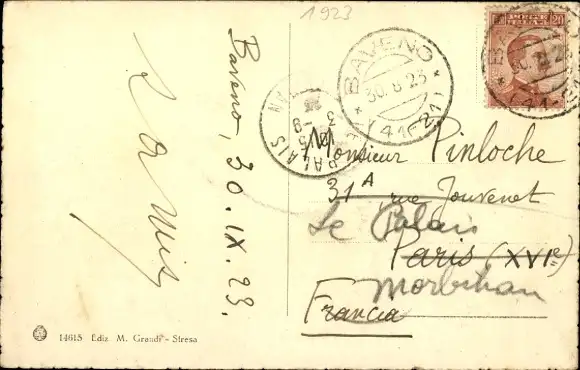 1923
Baveno, 30.IX.23.
BAVENO
30.8.23
(41-21)
POSTE ITALIANE 20
PALAIS
Monsieur Pinloche
31A rue Jouvenet
Le Palais
Paris (XVIe)
Morbihan
Francia
14615 Ediz. M. Grandi - Stresa